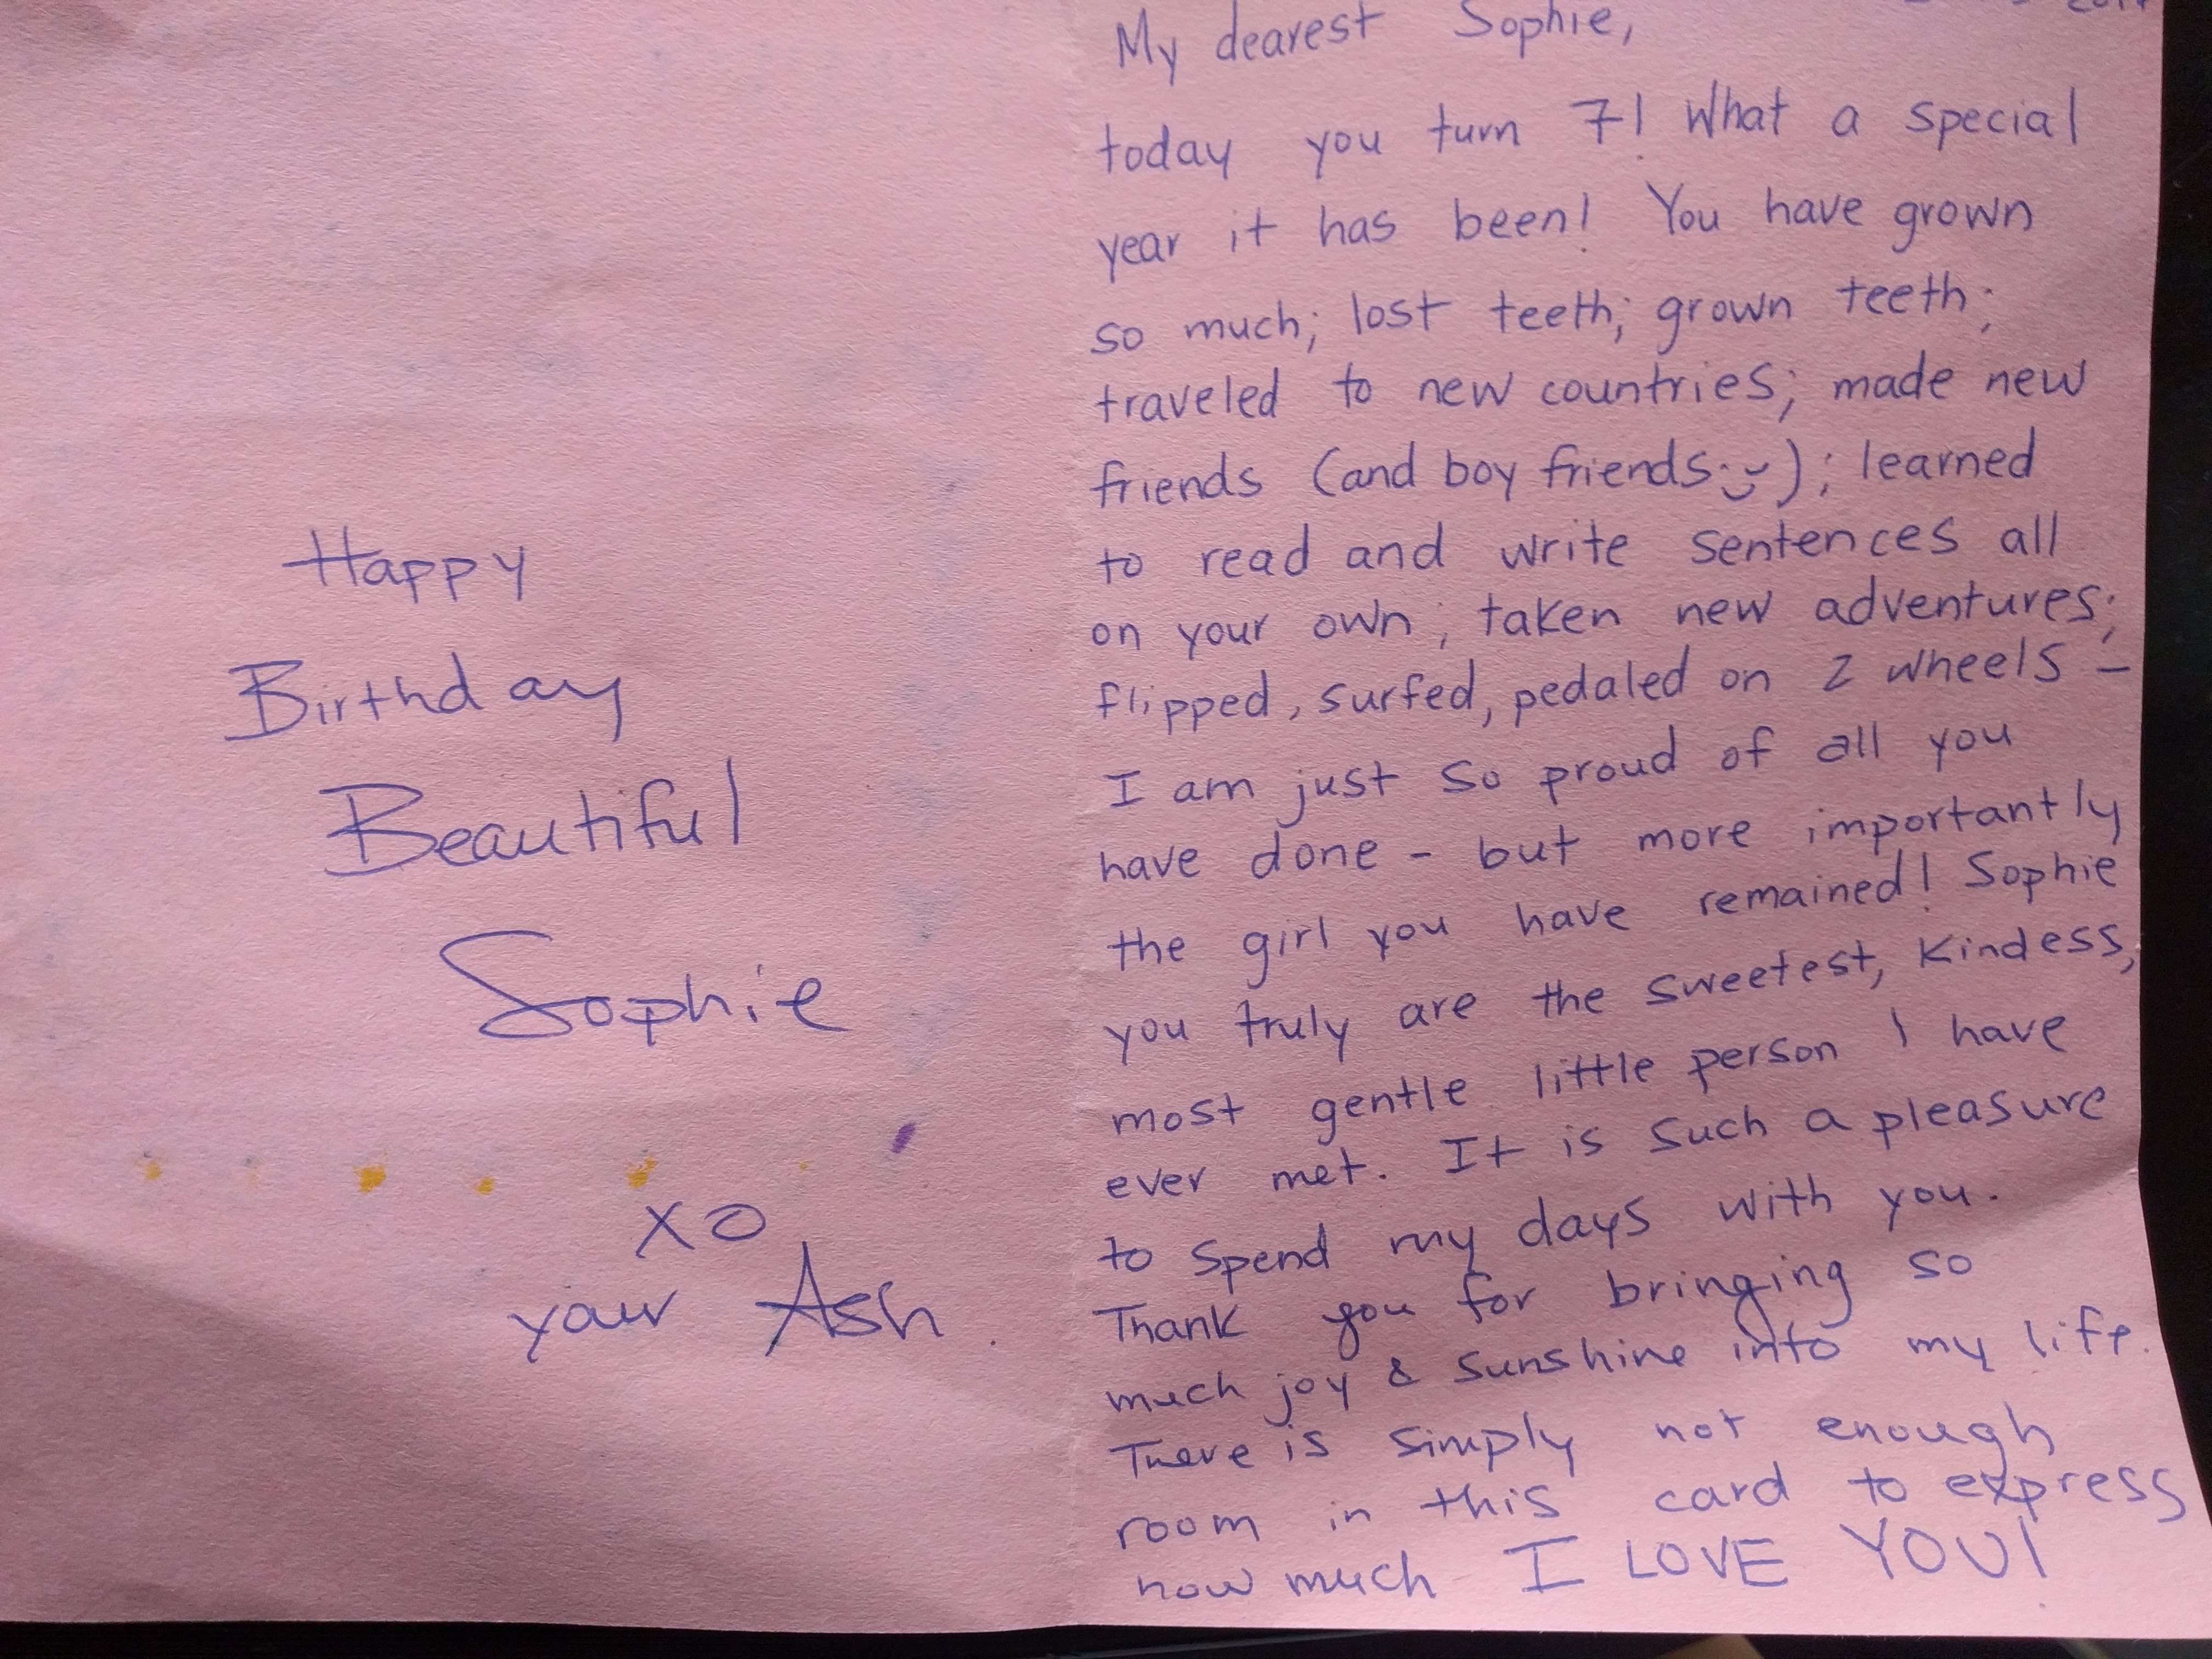 Happy
Birthday
Beautiful
Sophie
XO
your Ash
My dearest Sophie,
today you turn 7! What a special
year it has been! You have grown
so much; lost teeth; grown teeth;
traveled to new countries; made new
friends (and boy friends :)); learned
to read and write sentences all
on your own; taken new adventures;
flipped, surfed, pedaled on 2 wheels -
I am just so proud of all you
have done - but more importantly
the girl you have remained! Sophie
you truly are the sweetest, kindess,
most gentle little person I have
ever met. It is such a pleasure
to spend my days with you.
Thank you for bringing so
much joy & sunshine into my life.
There is simply not enough
room in this card to express
how much I LOVE YOU!